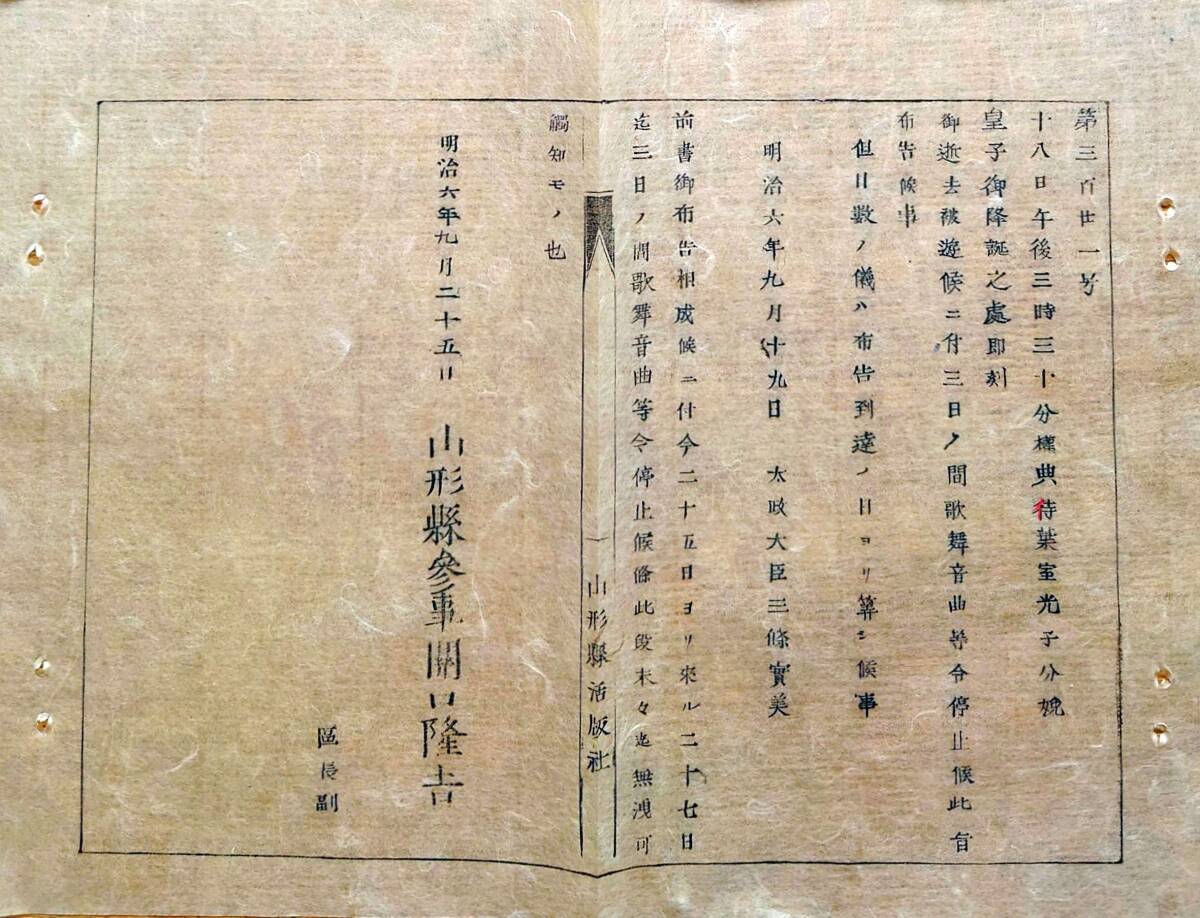 第三百廿一号
十八日午後三時三十分権典侍葉室光子分娩
皇子御降誕之處即刻
御逝去被遊候ニ付三日ノ間歌舞音曲等令停止候此旨
布告候事
但日数ノ儀ハ布告到達ノ日ヨリ算シ候事
明治六年九月十九日 太政大臣三條實美
前書御布告相成候ニ付今二十五日ヨリ來ル二十七日
迄三日ノ間歌舞音曲等令停止候條此段末々迄無洩可
觸知モノ也
明治六年九月二十五日 山形縣參事關口隆吉
區長副
山形縣活版社